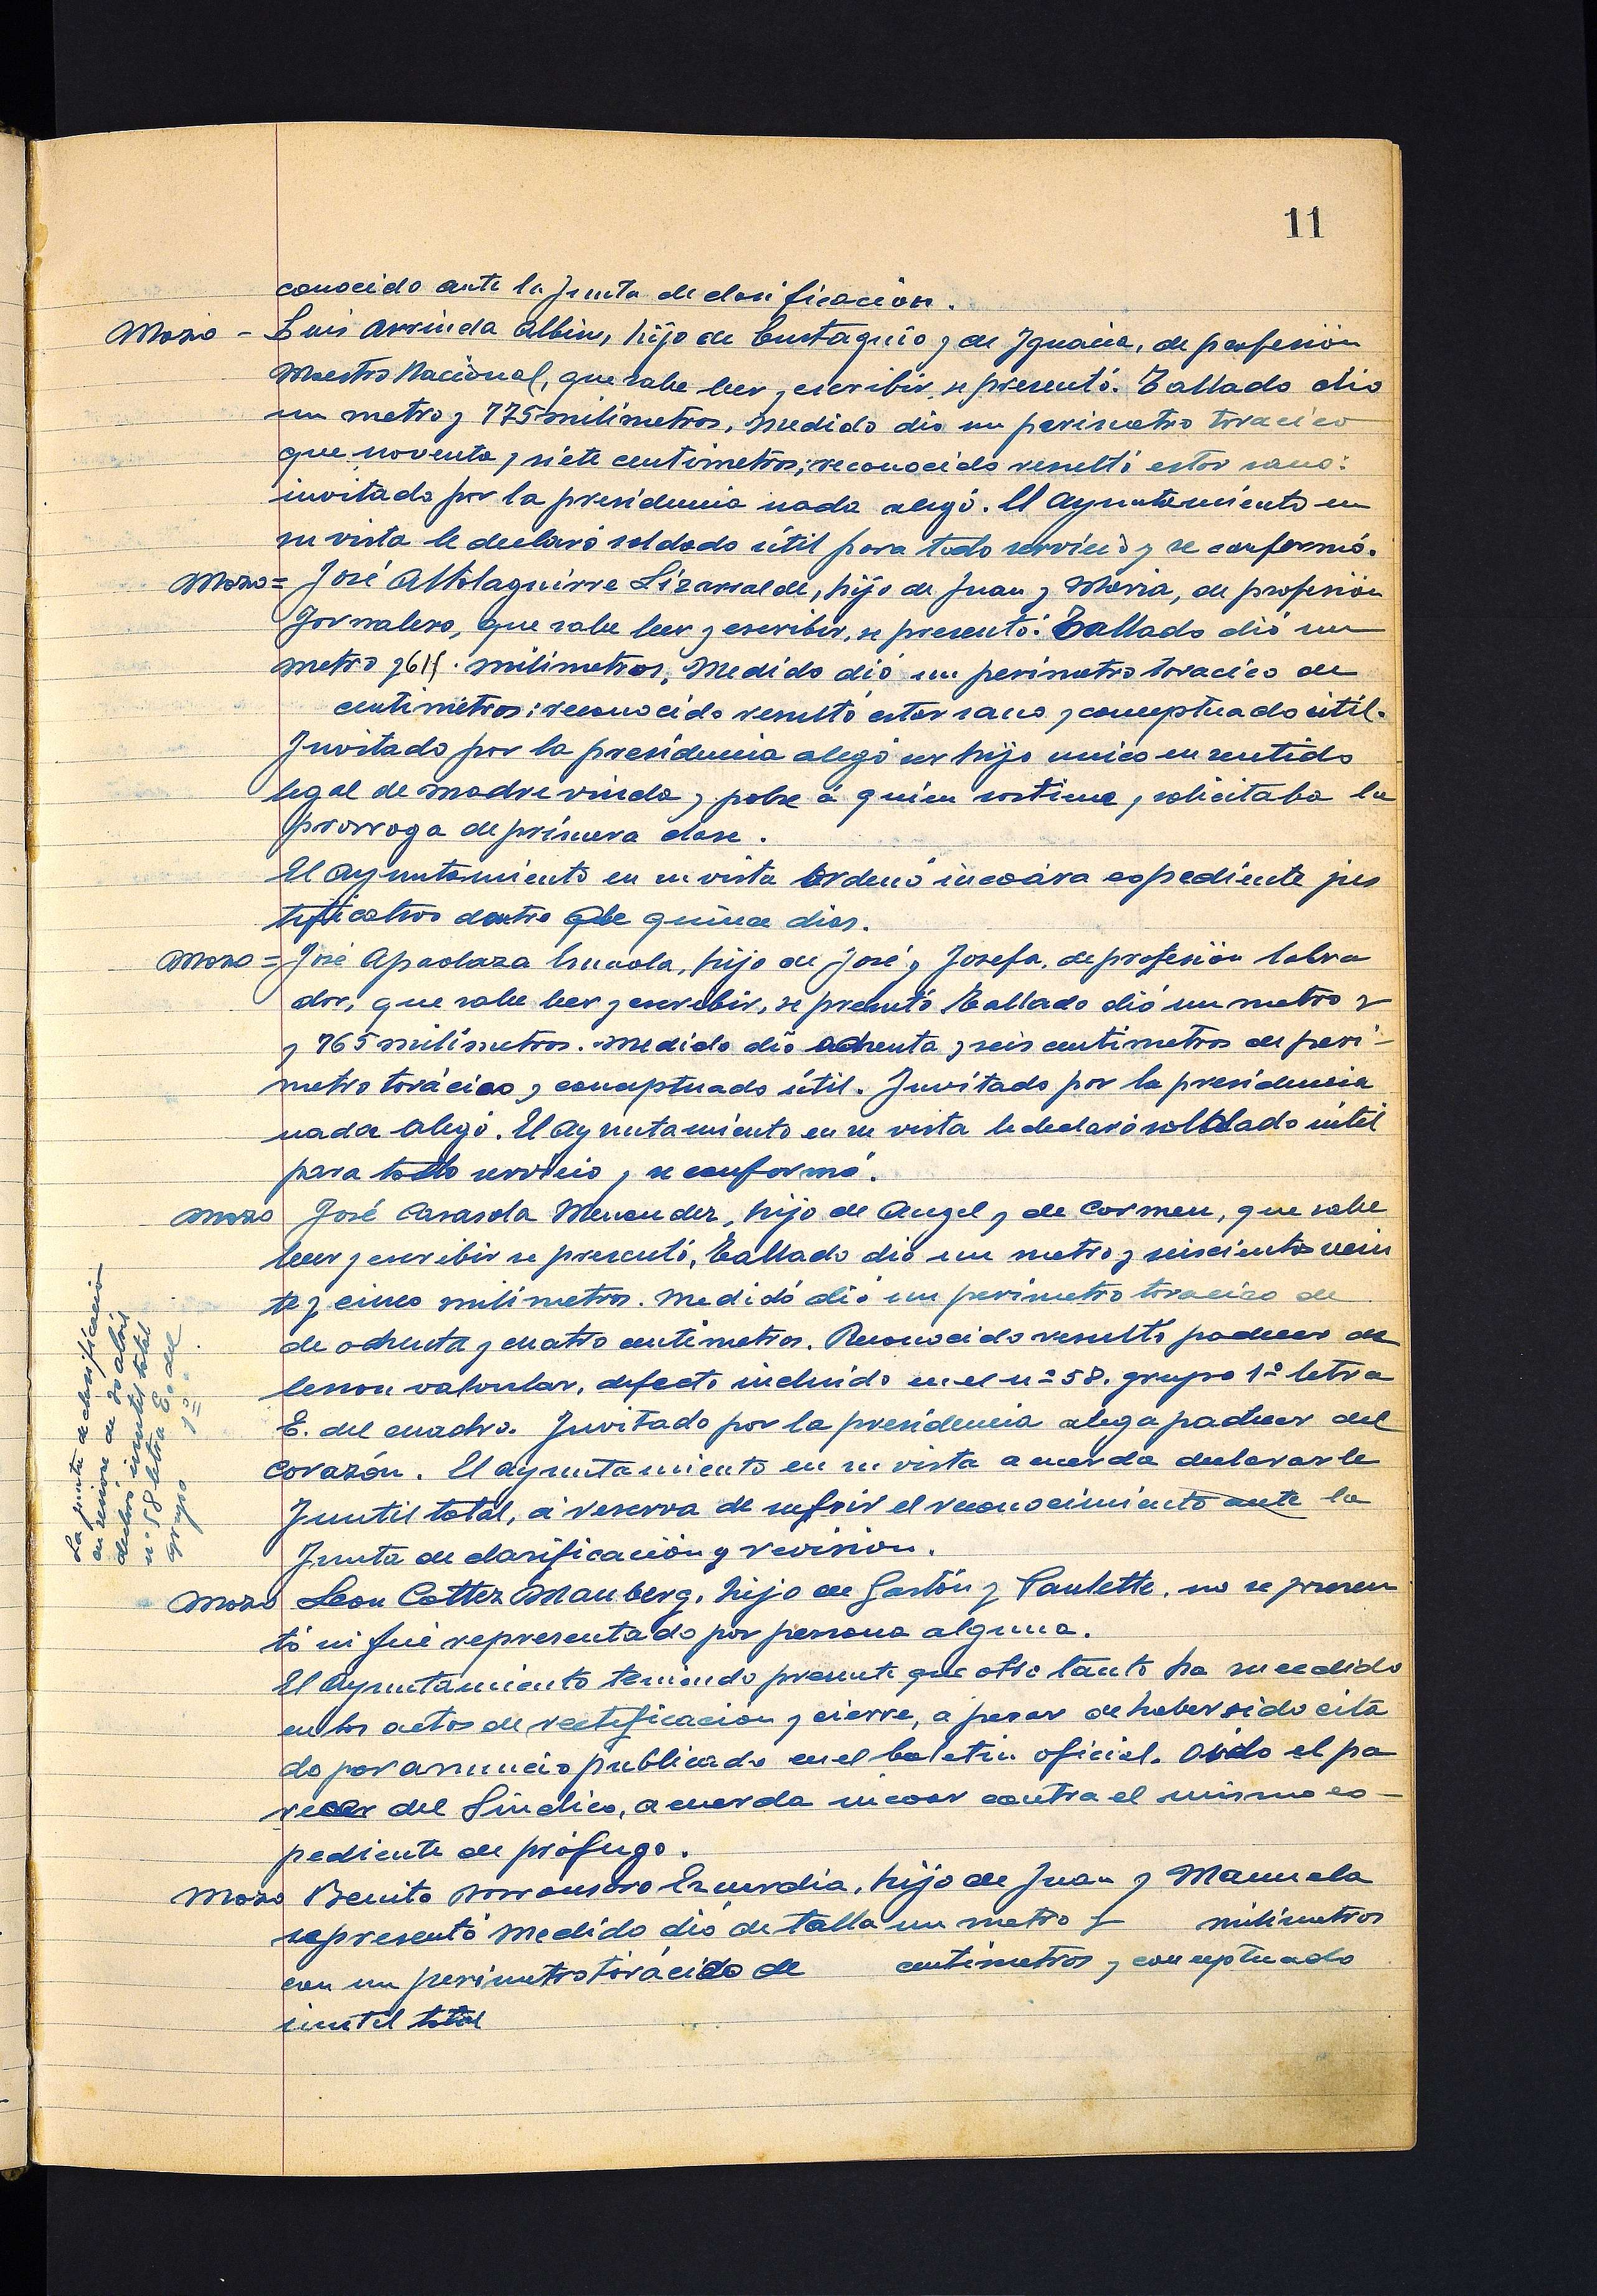 11
conocido ante la Junta de clasificación.
Mozo - Luis Arrinda Albisu, hijo de Eustaquio y de Ignacia, de profesión
Maestro Nacional, que sabe leer y escribir, se presentó. Tallado dio
un metro y 775 milímetros, medido dio un perimetro toracico
que noventa y siete centimetros; reconocido resultó estar sano:
invitado por la presidencia nada alegó. El Ayuntamiento en
su vista le declaró soldado útil para todo servicio y se conformó.
Mozo = José Altolaguirre Lizarralde, hijo de Juan y Maria, de profesión
Jornalero, que sabe leer y escribir, se presentó. Tallado dió un
metro y 615. milimetros, Medido dió un perimetro toracico de
centimetros; reconocido resultó estar sano y conceptuado útil.
Invitado por la presidencia alegó ser hijo unico en sentido
legal de madre viuda y pobre á quien sostiene y solicitaba la
prorroga de primera clase.
El Ayuntamiento en su vista ordenó incoára espediente jus
tificativo dentro de quince dias.
Mozo = José Apaolaza, hijo de José y Josefa, de profesión labra
dor, que sabe leer y escribir, se presentó. Tallado dió un metro y
y 765 milímetros. Medido dio ochenta y seis centimetros de peri-
metro torácico y conceptuado útil. Invitado por la presidencia
nada alegó. El Ayuntamiento en su vista le declaró soldado útil
para todo servicio y se conformó.
Mozo José Casasola Menendez, hijo de Angel y de Carmen, que sabe
leer y escribir se presentó, Tallado dió un metro y seiscientos vein
te y cinco milimetros. Medidó dió un perimetro toracico de
de ochenta y cuatro centimetros. Reconocido resultó padecer de
lesion valvular, defecto incluido en el nº 58. grupo 1º letra
E. del cuadro. Invitado por la presidencia alega padecer del
corazón. El ayuntamiento en su vista acuerda declararle
Inutil total, á reserva de sufrir el reconocimiento ante la
Junta de clasificación y revision.
La junta de clasificacion
en sesion de 30 abril
declaró inutil total
nº 58 letra E. del
grupo 1º.
Mozo Leon Cottez Mauberg, hijo de Gastón y Paulette, no se presen
tó ni fué representado por persona alguna.
El Ayuntamiento teniendo presente que otro tanto ha sucedido
en los actos de rectificacion y cierre, a pesar de haber sido cita
do por anuncio publicado en el boletin oficial. Oido el pa
recer del Síndico, acuerda incoar contra el mismo es-
pediente de prófugo.
Mozo Benito Ezcurdia, hijo de Juan y Manuela
se presentó medido dió de talla un metro y milimetros
con un perimetro torácico de centimetros y conceptuado
inutil total